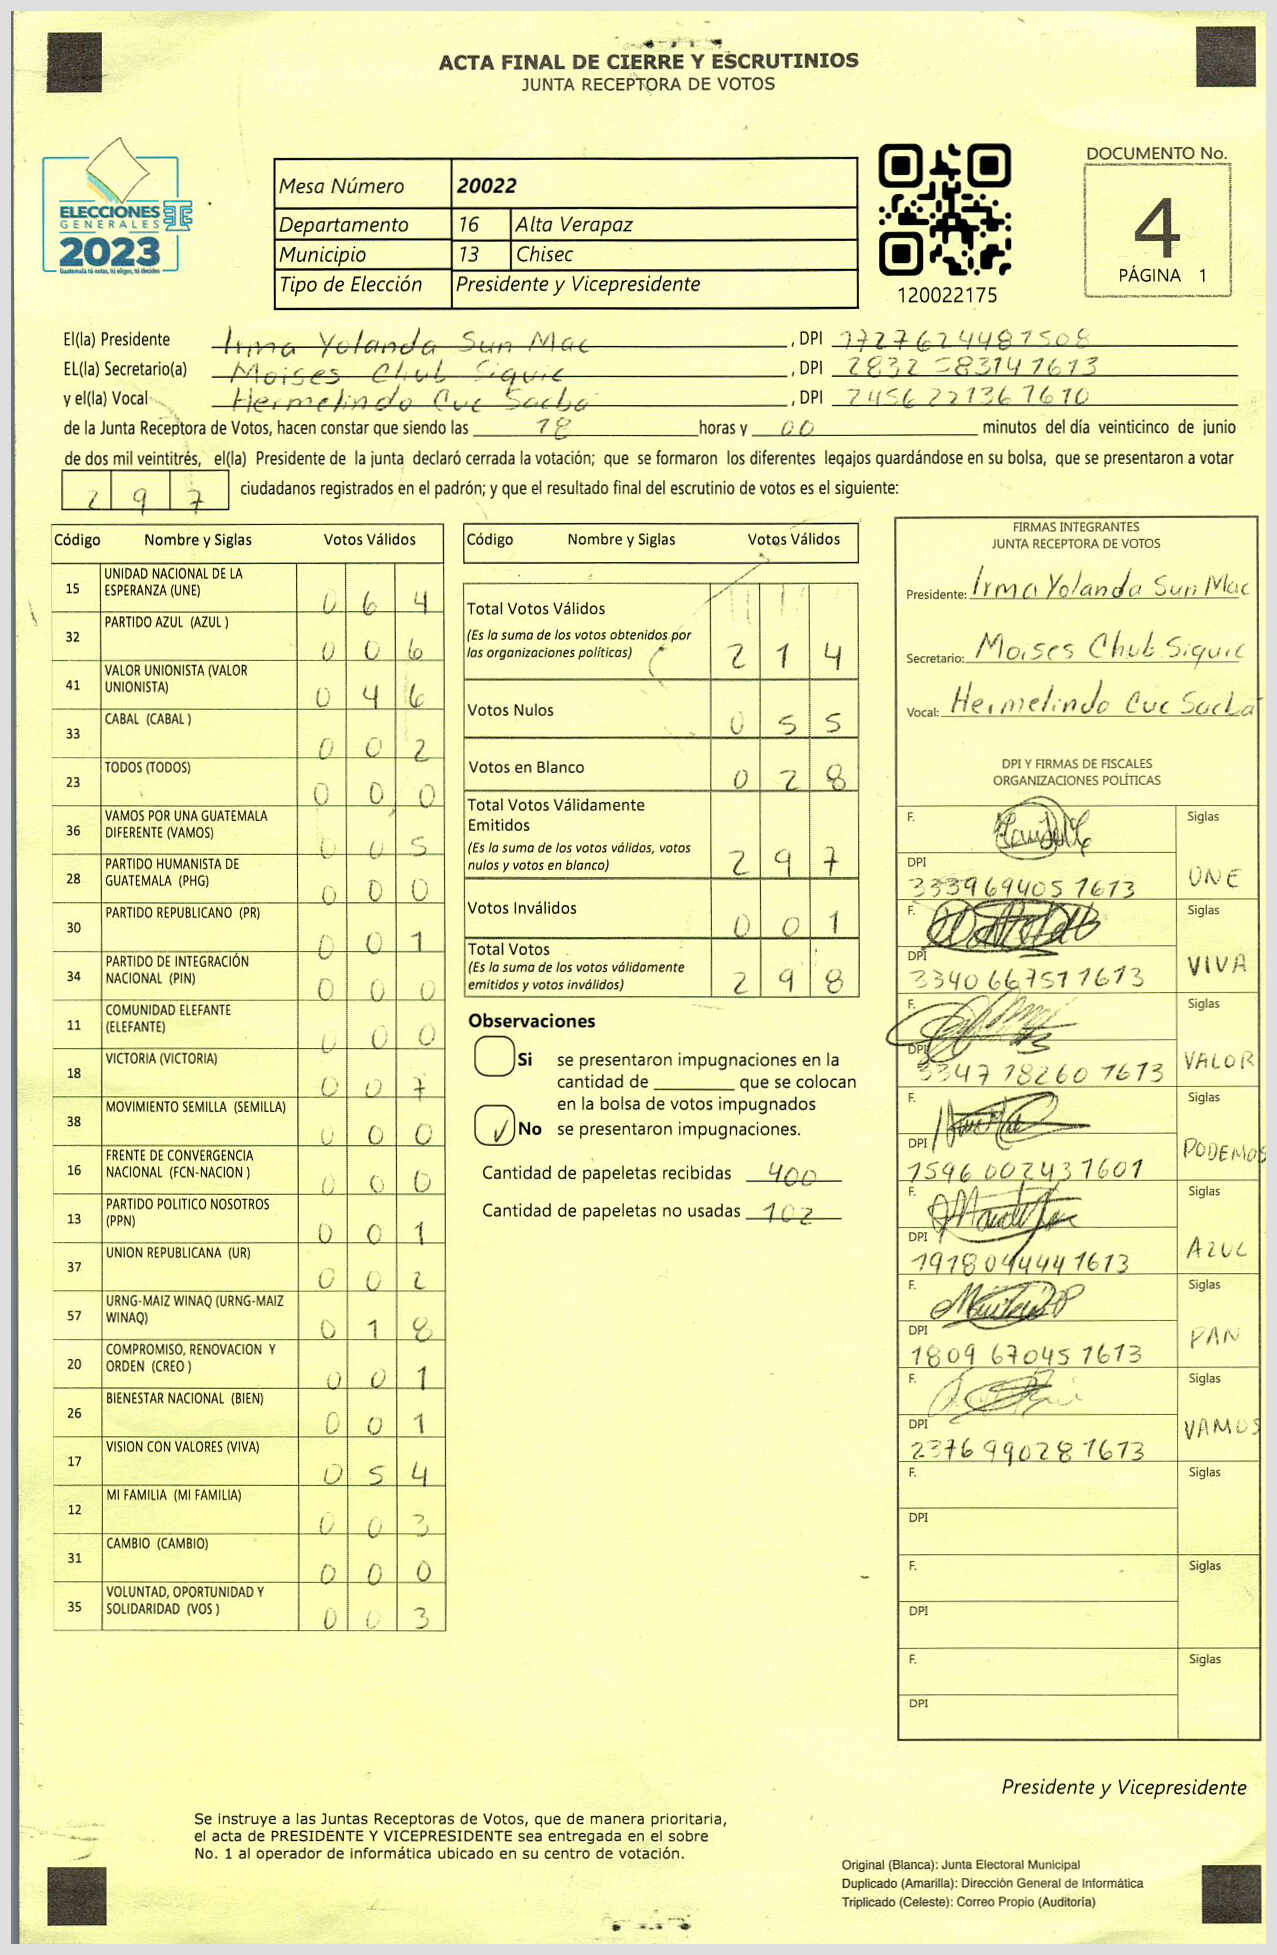 ACTA FINAL DE CIERRE Y ESCRUTINIOS
JUNTA RECEPTORA DE VOTOS
ELECCIONES
GENERALES
2023
Guatemala tú votas, tú eliges, tú decides
Mesa Número 20022
Departamento 16 Alta Verapaz
Municipio 13 Chisec
Tipo de Elección Presidente y Vicepresidente
120022175
DOCUMENTO No.
4
PÁGINA 1
El(la) Presidente Irma Yolanda Sun Mac , DPI 1727624481508
EL(la) Secretario(a) Moises Chub Siquic , DPI 2832 58314 1613
y el(la) Vocal Hermelindo Cuc Sacba , DPI 2456221361610
de la Junta Receptora de Votos, hacen constar que siendo las 18 horas y 00 minutos del día veinticinco de junio
de dos mil veintitrés, el(la) Presidente de la junta declaró cerrada la votación; que se formaron los diferentes legajos guardándose en su bolsa, que se presentaron a votar
297 ciudadanos registrados en el padrón; y que el resultado final del escrutinio de votos es el siguiente:
Código Nombre y Siglas Votos Válidos
15 UNIDAD NACIONAL DE LA
ESPERANZA (UNE) 0 6 4
32 PARTIDO AZUL (AZUL ) 0 0 6
41 VALOR UNIONISTA (VALOR
UNIONISTA) 0 4 6
33 CABAL (CABAL ) 0 0 2
23 TODOS (TODOS) 0 0 0
36 VAMOS POR UNA GUATEMALA
DIFERENTE (VAMOS) 0 0 5
28 PARTIDO HUMANISTA DE
GUATEMALA (PHG) 0 0 0
30 PARTIDO REPUBLICANO (PR) 0 0 1
34 PARTIDO DE INTEGRACIÓN
NACIONAL (PIN) 0 0 0
11 COMUNIDAD ELEFANTE
(ELEFANTE) 0 0 0
18 VICTORIA (VICTORIA) 0 0 7
38 MOVIMIENTO SEMILLA (SEMILLA) 0 0 0
16 FRENTE DE CONVERGENCIA
NACIONAL (FCN-NACION ) 0 0 0
13 PARTIDO POLITICO NOSOTROS
(PPN) 0 0 1
37 UNION REPUBLICANA (UR) 0 0 2
57 URNG-MAIZ WINAQ (URNG-MAIZ
WINAQ) 0 1 8
20 COMPROMISO, RENOVACION Y
ORDEN (CREO ) 0 0 1
26 BIENESTAR NACIONAL (BIEN) 0 0 1
17 VISION CON VALORES (VIVA) 0 5 4
12 MI FAMILIA (MI FAMILIA) 0 0 3
31 CAMBIO (CAMBIO) 0 0 0
35 VOLUNTAD, OPORTUNIDAD Y
SOLIDARIDAD (VOS ) 0 0 3
Código Nombre y Siglas Votos Válidos
Total Votos Válidos
(Es la suma de los votos obtenidos por
las organizaciones políticas) 2 1 4
Votos Nulos 0 5 5
Votos en Blanco 0 2 8
Total Votos Válidamente
Emitidos
(Es la suma de los votos válidos, votos
nulos y votos en blanco) 2 9 7
Votos Inválidos 0 0 1
Total Votos
(Es la suma de los votos válidamente
emitidos y votos inválidos) 2 9 8
Observaciones
Si se presentaron impugnaciones en la
cantidad de ________ que se colocan
en la bolsa de votos impugnados
No se presentaron impugnaciones.
Cantidad de papeletas recibidas 400
Cantidad de papeletas no usadas 102
FIRMAS INTEGRANTES
JUNTA RECEPTORA DE VOTOS
Presidente: Irma Yolanda Sun Mac
Secretario: Moises Chub Siquic
Vocal: Hermelindo Cuc Sacba
DPI Y FIRMAS DE FISCALES
ORGANIZACIONES POLÍTICAS
F. Siglas
DPI UNE
333969405 1613
F. Siglas
DPI VIVA
3340 66751 1613
F. Siglas
DPI VALOR
3347 18260 1613
F. Siglas
DPI PODEMOS
1596 00243 1601
F. Siglas
DPI AZUL
1918 04444 1613
F. Siglas
DPI PAN
1809 67045 1613
F. Siglas
DPI VAMOS
2376 99028 1613
F. Siglas
DPI
F. Siglas
DPI
F. Siglas
DPI
Presidente y Vicepresidente
Se instruye a las Juntas Receptoras de Votos, que de manera prioritaria,
el acta de PRESIDENTE Y VICEPRESIDENTE sea entregada en el sobre
No. 1 al operador de informática ubicado en su centro de votación.
Original (Blanca): Junta Electoral Municipal
Duplicado (Amarilla): Dirección General de Informática
Triplicado (Celeste): Correo Propio (Auditoría)